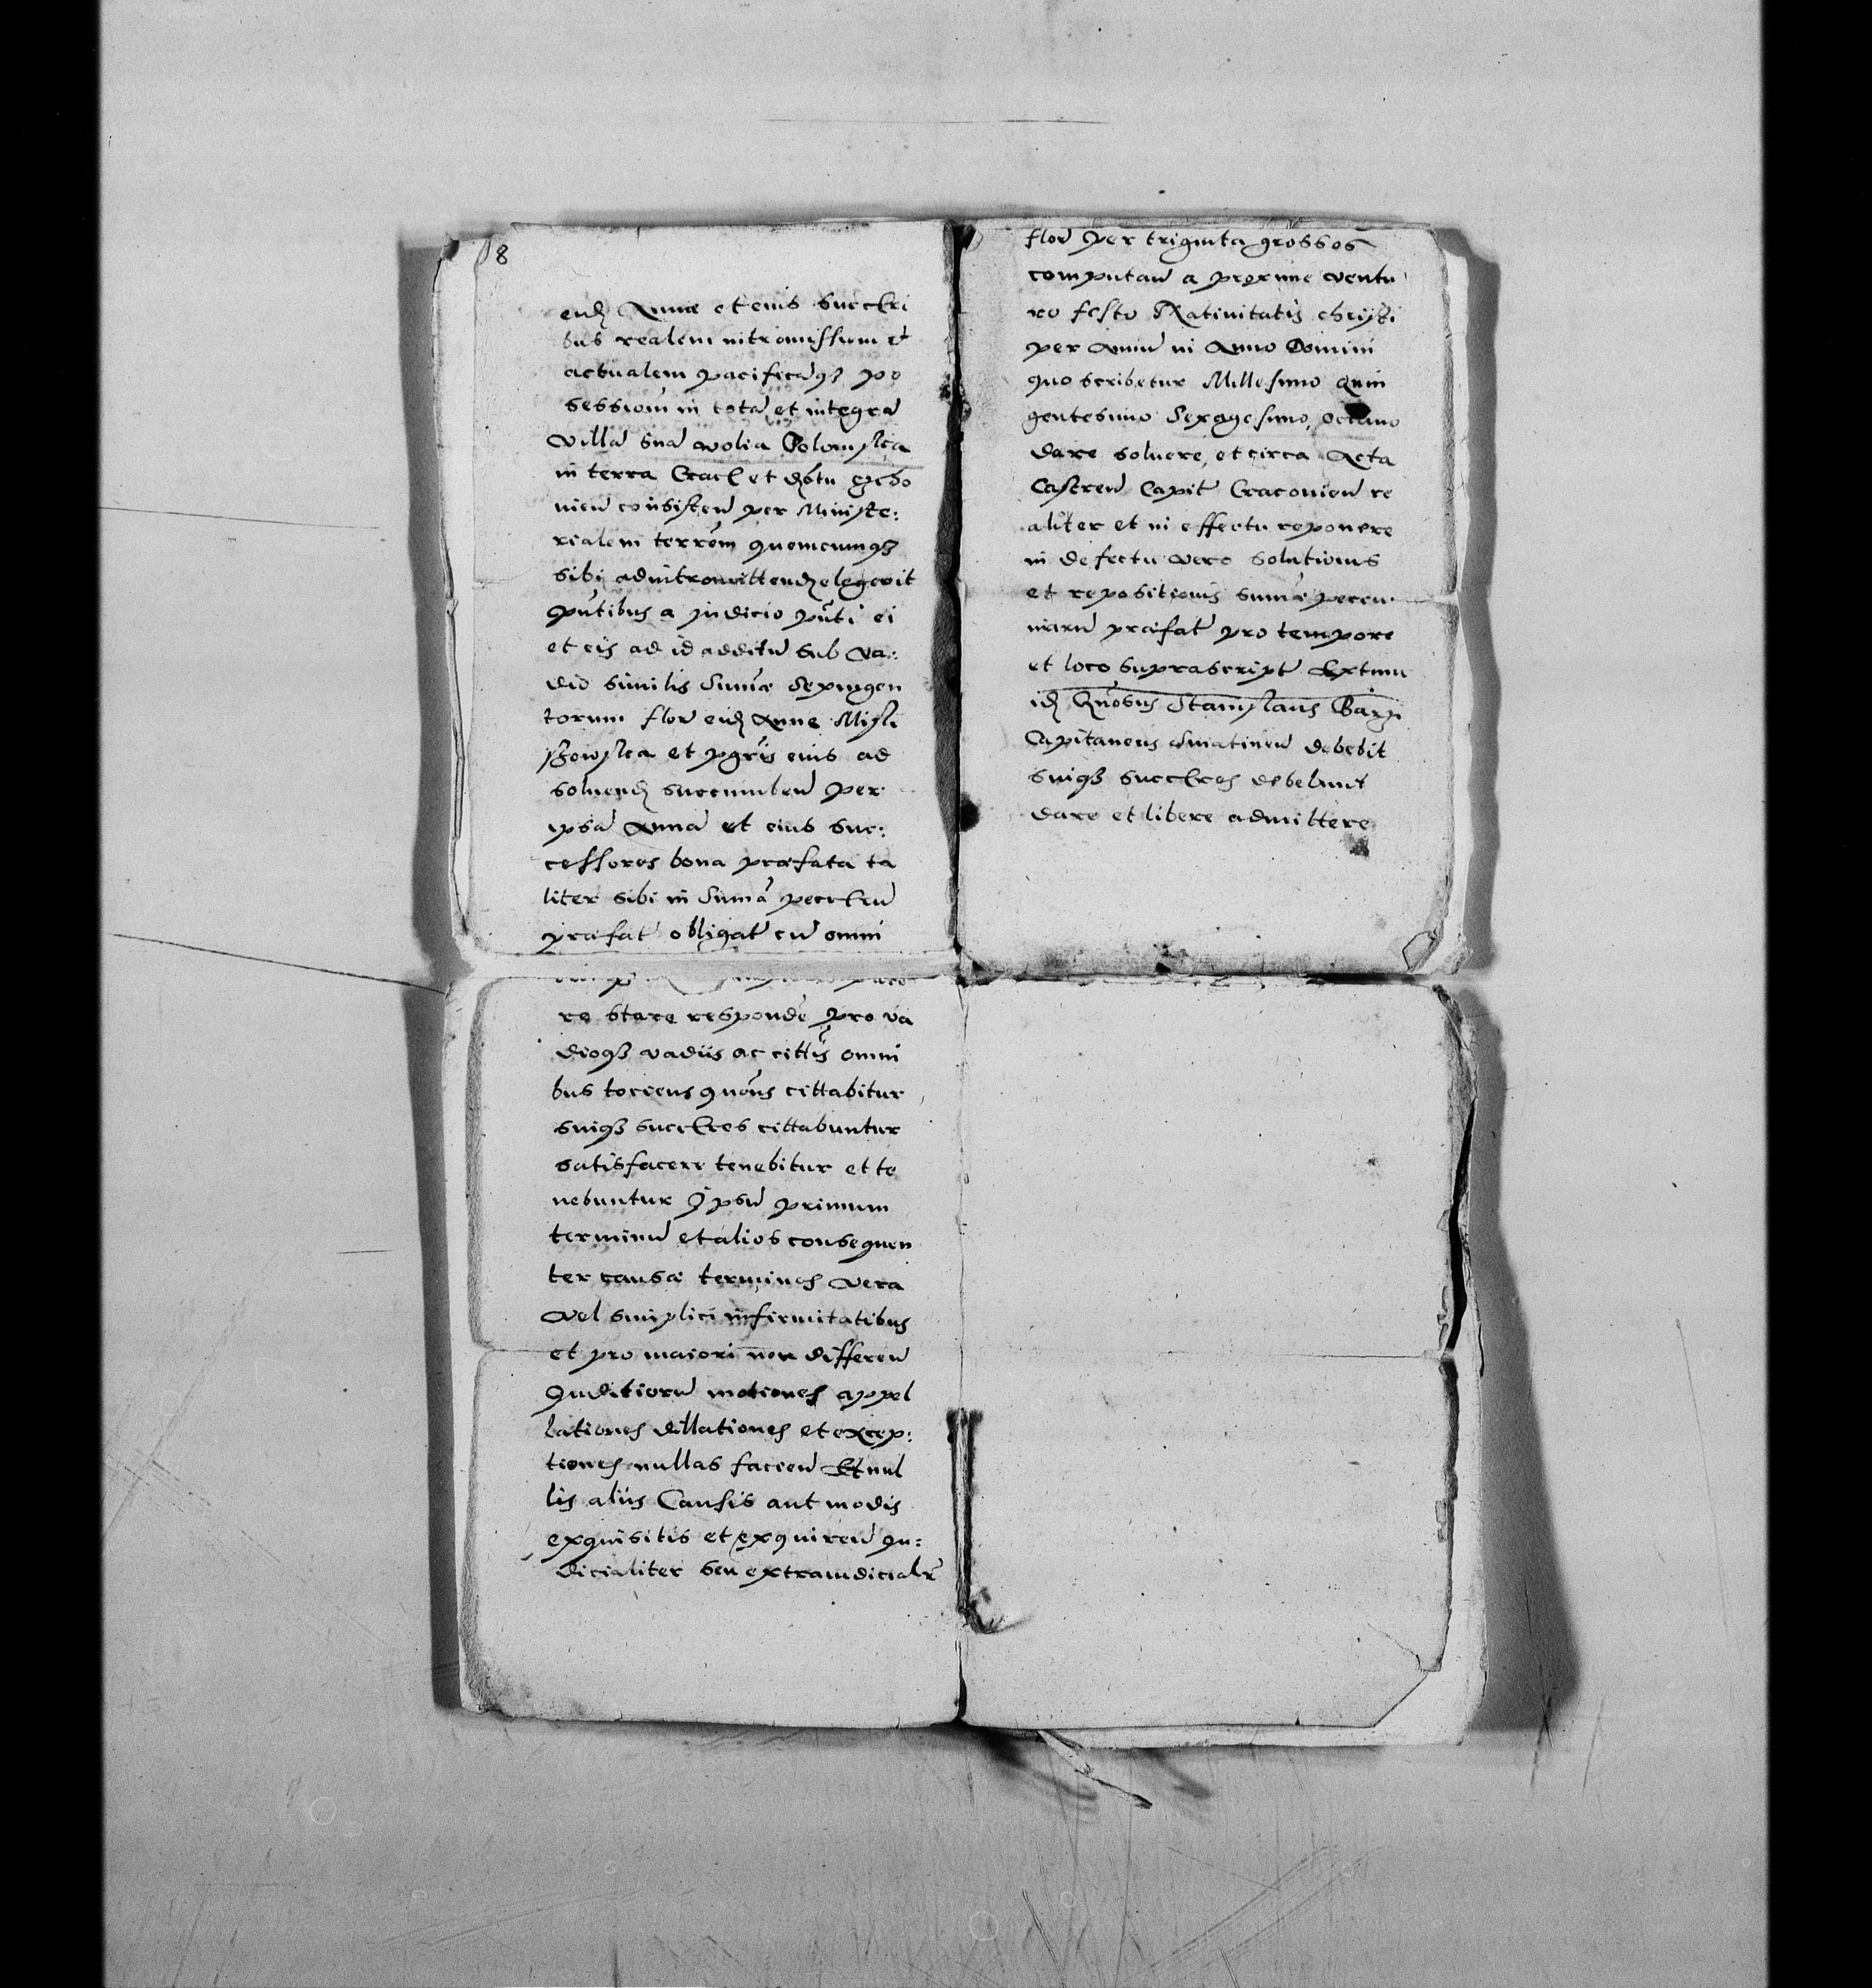 8
eidʒ Annæ et eius succrri
bus realem intromissiom et
actualem pacificāqʒ pos
sessiom in totā et integrā
Villā suā Wolia
in terra Crac et
nien̄ consisten̄ per Ministe:
rialem terrēm quemcumqʒ
sibi ad intromittendʒ elegerit
pn̄tibus a Judicio pn̄ti ei
et eis ad id additū sub Va:
dio similis Sum̄æ Sexingen
torum flor̄ eidʒ Anne Mysli
szowska et pgrīs eius ad
soluendʒ succumben̄ per
ipsā Annā et eius suc:
cessores bona præfata ta
liter sibi in Summā
præfat̄ obligat̄ cū omni
re stare respondē pro va
dioqʒ vadiis ac cittīs omni
bus tociens quōns cittabitur
suiqʒ succres cittabuntur
satisfacere tenebitur et te
nebuntur Ipsū primum
terminū et alios consequen
ter causæ terminos vera
vel simplici infirmitatibus
et pro maiori non differen̄
Juditiorū motiones appel
lationes dillationes et excep:
tiones nullas facien̄ Et nul
lis aliis Causis aut modis
exquisitis et exquiren̄ Ju:
dicialiter seu extraiudicialr̄
flor̄ per triginta grossos
computan̄ a proxime ventu
ro festo Natiuitatis christi
per Annū in Anno Domini
quo scribetur Millesimo quin
gentesimo Sexagesimo, octauo
dare soluere, et circa Acta
Castren̄ Capit̄ Cracouien̄ re
aliter et in effectu reponere
in defectu vero solutionis
et repositionis sum̄æ pecu
niarū præfat̄ pro tempore
et loco suprascript̄ Extunc
idʒ Gnōsus Stanislaus Barzi
Capitaneus Sniatinen̄ debebit
suiqʒ succres debebunt
dare et libere admittere